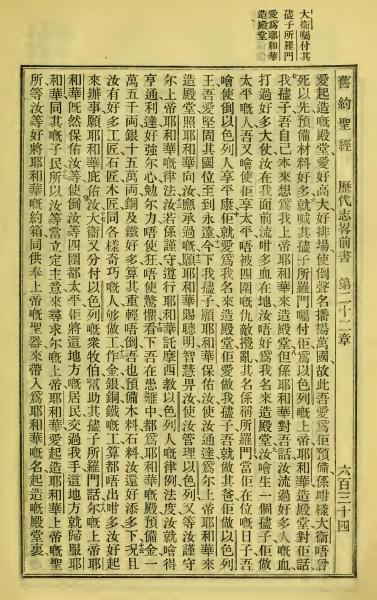 大衛囑付其
子所羅門
愛爲耶和華
造殿堂
舊約聖經 歷代志畧前書 第二十二章 六百三十四
愛起造嘅殿堂愛好高大好排場使倒聲名播揚萬國故此吾愛爲佢預備係咁樣大衛唔曾
死以先預備材料好多就喊其子所羅門囑付佢爲以色列嘅上帝耶和華造殿堂對佢話
我子吾自己本來想爲我上帝耶和華來造殿堂但係耶和華對吾話汝流過好多人嘅血
打過好多大仗汝在我面前流咁多血在地汝唔好爲我名來造殿堂汝噲生一個子佢做
太平嘅人吾又噲使佢享太平唔被四圍嘅仇敵攪亂其名係稱所羅門當佢在位嘅日子吾
噲使倒以色列人享平康佢就愛爲我名來造殿堂佢愛做我子吾就做其爸佢做以色列
王吾愛堅固其國位至到永遠今下我子願耶和華保佑汝使汝通達爲尔上帝耶和華來
造殿堂照耶和華向汝應承過嘅願耶和華賜聰明智慧畀汝使汝管理以色列又等汝謹守
尔上帝耶和華嘅律法汝若係謹守遵行耶和華託摩西教以色列人嘅律例法度汝就噲得
亨通利達好強尔心勉尔力唔使狂唔使驚懼看下吾在患難中都爲耶和華嘅殿預備金一
萬五千兩銀十五萬兩銅及鐵好多算其重輕唔倒吾也預備木料石料汝還好添多下況且
汝有好多工匠石匠木匠同各樣奇巧嘅人够做工作金銀銅鐵嘅工算都唔出咁多汝好起
來辦事願耶和華庇佑汝大衛又分付以色列嘅衆牧伯幫助其子所羅門話尔嘅上帝耶
和華既然保佑汝等使倒汝等四圍都太平佢將這地方嘅居民交過我手這地方就歸服耶
和華同其嘅子民所以汝等當立定主意來尋求尔嘅上帝耶和華愛起造耶和華上帝嘅聖
所等汝等好將耶和華嘅約箱同供奉上帝嘅聖器來帶入爲耶和華嘅名起造嘅殿堂裏